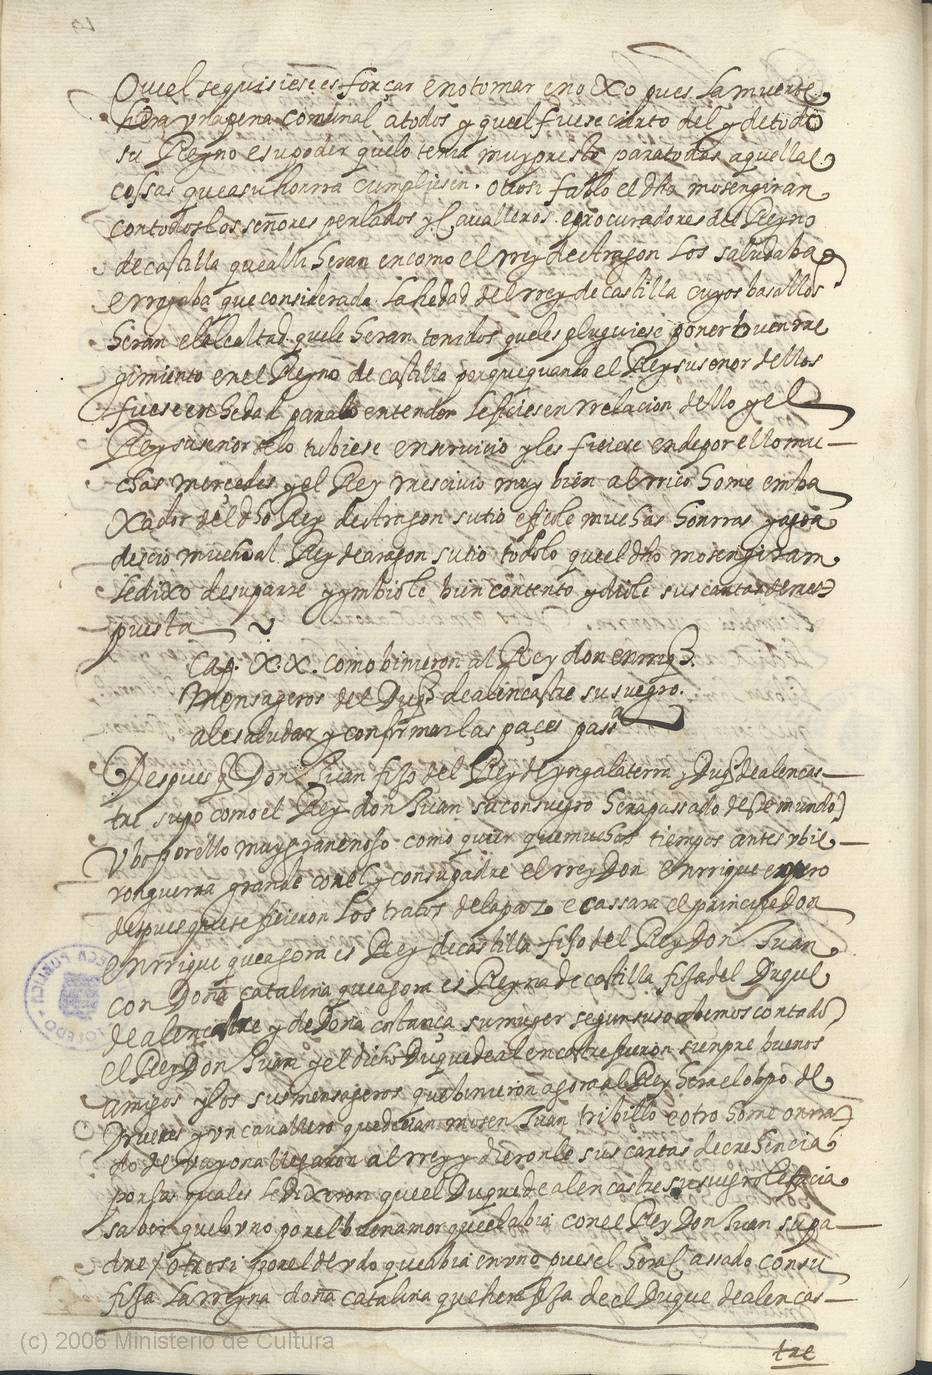 Que el se quisiese esforçar e no tomar enoxo pues la muerte
hera vna pena comunal a todos y que el fuese cierto del y de todo
su Reyno e su poder que lo tenia muy presto para todas aquellas
cossas que a su honrra cumpliesen. otrosi fablo el dho mosen giran
con todos los señores perlados y cavalleros e procuradores del Reyno
de castilla que alli heran en como el rrey de Aragon los saludaba
e rrogaba que considerada la hedad del rrey de castilla cuyos basallos
heran e la lealtad que le heran tenidos que les pluguiese poner buen rre
gimiento en el Reyno de castilla porque quando el Rey su señor dellos
fuese en hedad para lo entender le fiçiesen rrelacion dello y el
Rey su señor selo tubiese en serviçio y les fiçiese ende por ello mu
chas merçedes y el Rey rresciuio muy bien al rrico home emba
xador del dho Rey de Aragon su tio e fiçole muchas honrras y agra
desçio mucho al Rey de aragon su tio todo lo que el dho mosen giram
le dixo de su parte y ymbiole bien contento y diole sus cartas de rres
puesta
Cap. XX. como binieron al Rey don enrriq
Mensageros del Duq de alencastre su suegro
a le saludar y confirmar las paçes pass
Despues q Don Juan fijo del Rey de yngalaterra y Duq de alencas
tre supo como el Rey don Juan su consuegro hera passado de este mundo
Vbo por ello muy gran enojo como quier que muchos tiempos antes vbie
ron guerra grande con el y con su padre el rrey Don Enrrique empero
despues que se fiçieron los tratos de la paz e cassara el principe Don
Enrrique que agora es Rey de castilla fijo del Rey Don Juan
con Doña catalina que agora es Reyna de castilla fija del Duque
de alencastre y de Doña costança su muger segun suso abemos contado
el Rey Don Juan y el dicho Duque de alencastre fueron sienpre buenos
amigos y los sus mensageros que binieron agora al Rey hera el obpo de
y vn cavallero que deçian mosen Juan tribillo e otro home onrra
do de vayona llegaron al rrey y dieronle sus cartas de crehencia
por las quales le dixeron que el Duque de alencastre su suegro le façia
saber que lo vno por el buen amor que el abia con el Rey Don Juan su pa
dre / otrosi por el devdo que abia en vno pues el hera cassado con su
fija la rreyna doña catalina que hera fija de el Duque de alencas
tre
(c) 2006 Ministerio de Cultura